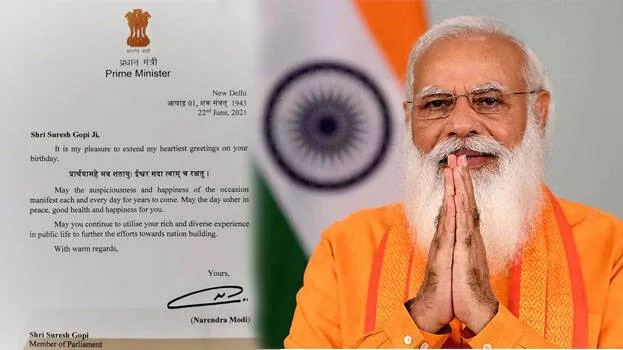 प्रधान मंत्री
Prime Minister
New Delhi
आषाढ़ 01, शक संवत् 1943
22nd June, 2021
Shri Suresh Gopi Ji,
It is my pleasure to extend my heartiest greetings on your
birthday.
प्रार्थयामहे भव शतायुः ईश्वर सदा त्वाम् च रक्षतु ।
May the auspiciousness and happiness of the occasion
manifest each and every day for years to come. May the day usher in
peace, good health and happiness for you.
May you continue to utilise your rich and diverse experience
in public life to further the efforts towards nation building.
With warm regards,
Yours,
(Narendra Modi)
Shri Suresh Gopi
Member of Parliament